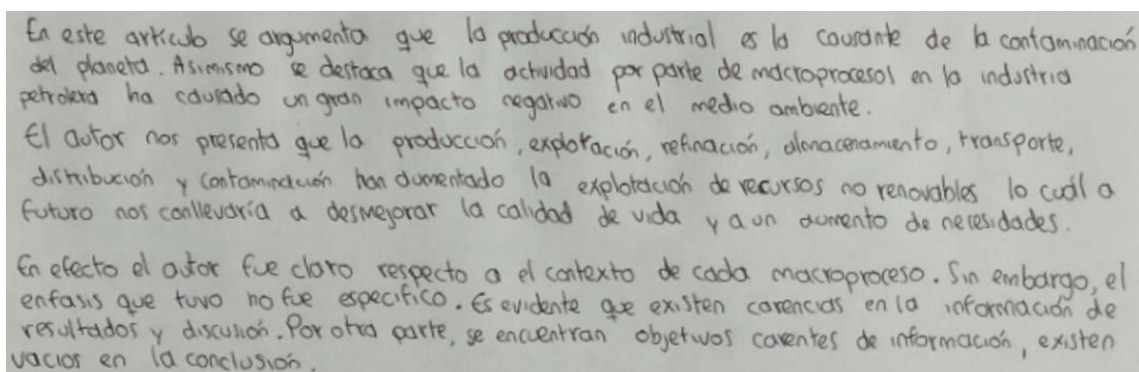 En este artículo se argumenta que la producción industrial es la causante de la contaminación
del planeta. Asimismo se destaca que la actividad por parte de macroprocesol en la industria
petrolera ha causado un gran impacto negativo en el medio ambiente.
El autor nos presenta que la producción, explotación, refinación, almacenamiento, transporte,
distribución y contaminación han aumentado la explotación de recursos no renovables lo cuál a
futuro nos conllevaría a desmejorar la calidad de vida y a un aumento de necesidades.
En efecto el autor fue claro respecto a el contexto de cada macroproceso. Sin embargo, el
enfasis que tuvo no fue especifico. Es evidente que existen carencias en la información de
resultados y discusión. Por otra parte, se encuentran objetivos carentes de información, existen
vacios en la conclusión.